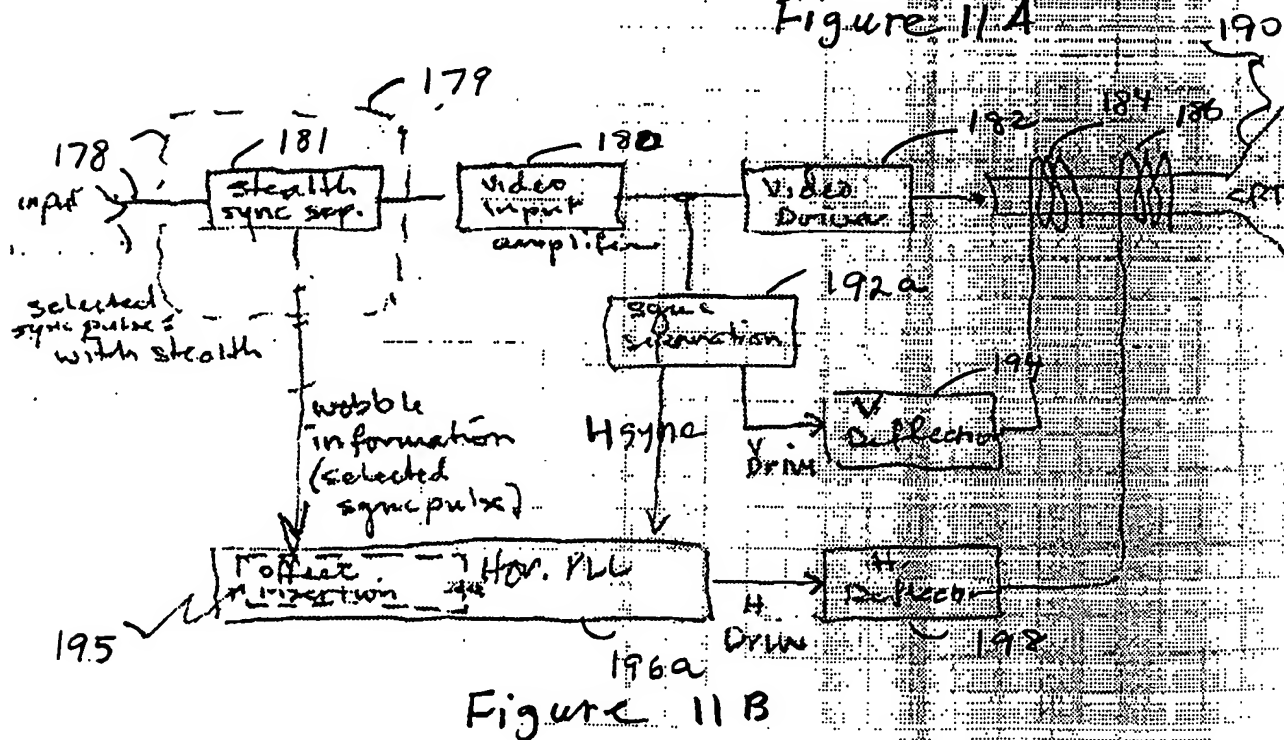 Figure 11A
190
179
184
186
178
181
180
182
input
stealth
sync sep.
Video
input
amplifier
Video
Driver
CRT
selected
sync pulses
with stealth
192a
sync
separation
194
wobble
information
(selected
sync pulse)
H sync
V
Drive
V
Deflection
offset
insertion
Hor. PLL
H
Drive
H
Deflection
195
196a
198
Figure 11B